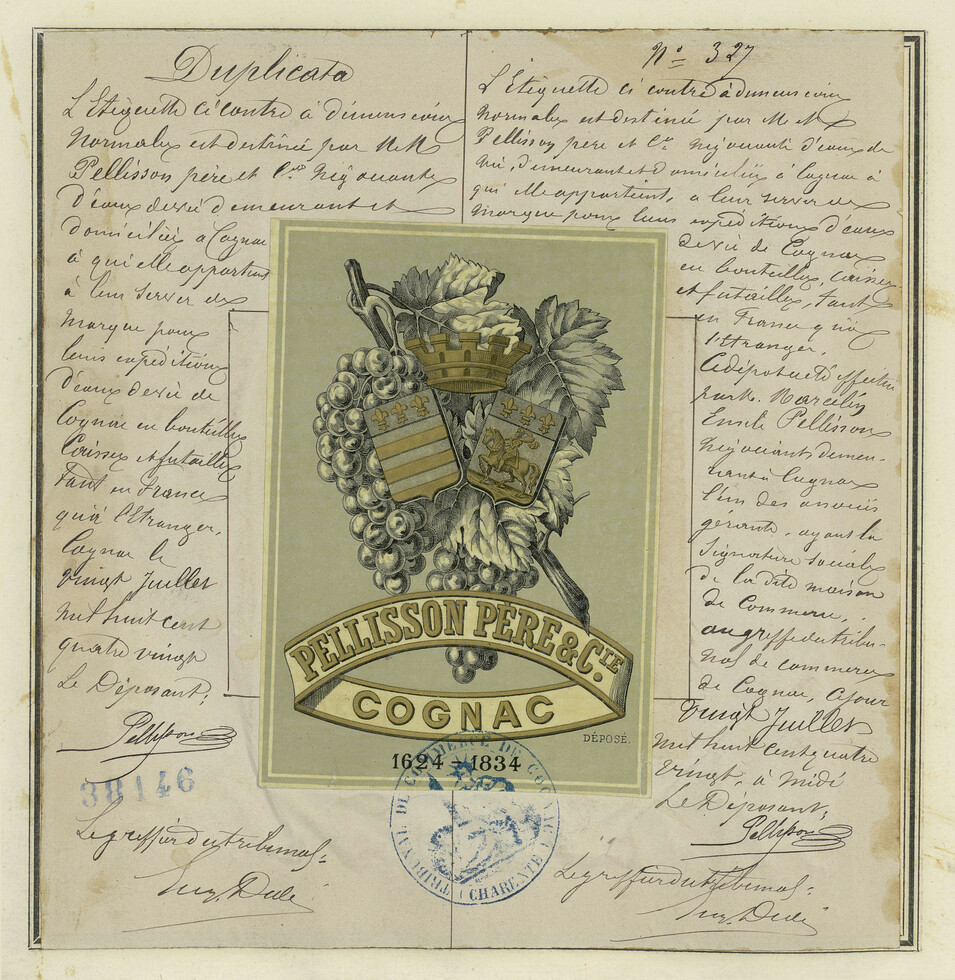 Duplicata
L'Etiquette ci contre à dimensions
normales est destinée par M M
Pellisson père et Cie négociants
d'eaux de vie demeurant et
domiciliés à Cognac
à qui elle appartient
à leur servir de
marque pour
leurs expéditions
d'eaux de vie de
Cognac en bouteilles
Caisses et futailles
tant en France
qu'à l'Etranger.
Cognac le
vingt Juillet
mil huit cent
quatre vingt
Le Déposant,
Pellisson
38146
Le greffier du tribunal:
N° 327
L'Etiquette ci contre à dimensions
normales est destinée par M M
Pellisson père et Cie négociants d'eaux de
vie, demeurant et domiciliés à Cognac à
qui elle appartient, à leur servir de
marque pour leurs expéditions d'eaux
de vie de Cognac
en bouteilles, caisses
et futailles, tant
en France qu'à
l'Etranger.
Ce dépôt a été effectué
par M. Marcelin
Emile Pellisson
négociant demeu-
rant à Cognac
l'un des associés
gérants, ayant la
signature sociale
de la dite maison
de Commerce,
au greffe du tribu-
nal de commerce
de Cognac, ce jour
vingt Juillet
mil huit cent quatre
vingt, à midi
Le Déposant,
Pellisson
Le greffier du tribunal:
PELLISSON PÈRE & CIE.
COGNAC
DÉPOSÉ.
1624 - 1834
TRIBUNAL DE COMMERCE DE COGNAC
CHARENTE